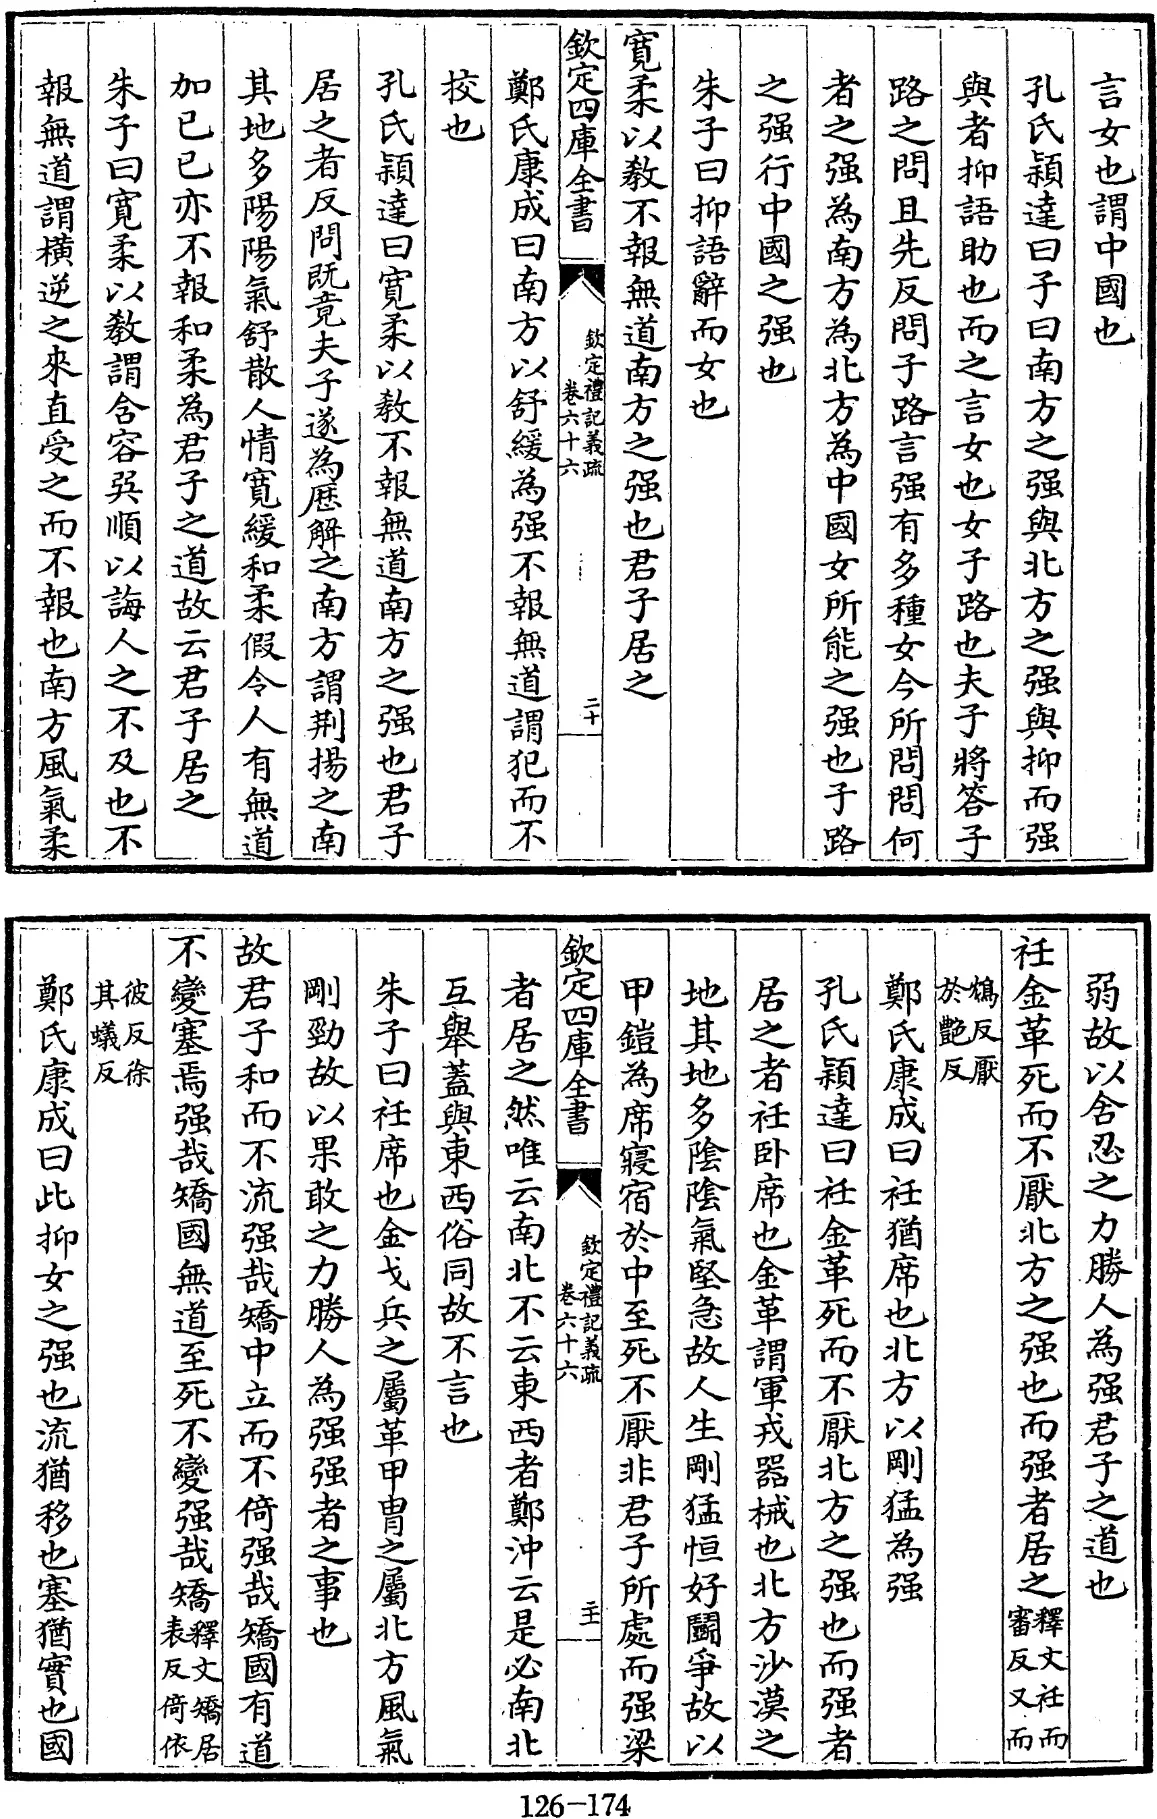 言女也謂中國也
孔氏穎達曰子曰南方之强與北方之强與抑而强
與者抑語助也而之言女也女子路也夫子將答子
路之問且先反問子路言强有多種女今所問問何
者之强為南方為北方為中國女所能之强也子路
之强行中國之强也
朱子曰抑語辭而女也
寛柔以教不報無道南方之强也君子居之
欽定四庫全書
欽定禮記義疏
卷六十六
二十
鄭氏康成曰南方以舒緩為强不報無道謂犯而不
挍也
孔氏穎達曰寛柔以教不報無道南方之强也君子
居之者反問既竟夫子遂為歴解之南方謂荆揚之南
其地多陽陽氣舒散人情寛緩和柔假令人有無道
加已已亦不報和柔為君子之道故云君子居之
朱子曰寛柔以教謂含容㢲順以誨人之不及也不
報無道謂横逆之來直受之而不報也南方風氣柔
弱故以含忍之力勝人為强君子之道也
衽金革死而不厭北方之强也而强者居之釋文衽而
審反又而
鴆反厭
於艷反
鄭氏康成曰衽猶席也北方以剛猛為强
孔氏穎達曰衽金革死而不厭北方之强也而强者
居之者衽卧席也金革謂軍戎器械也北方沙漠之
地其地多陰陰氣堅急故人生剛猛恒好鬬爭故以
甲鎧為席寢宿於中至死不厭非君子所處而强梁
欽定四庫全書
欽定禮記義疏
卷六十六
二十一
者居之然唯云南北不云東西者鄭沖云是必南北
互舉蓋與東西俗同故不言也
朱子曰衽席也金戈兵之屬革甲胄之屬北方風氣
剛勁故以果敢之力勝人為强强者之事也
故君子和而不流强哉矯中立而不倚强哉矯國有道
不變塞焉强哉矯國無道至死不變强哉矯釋文矯居
表反倚依
彼反徐
其蟻反
鄭氏康成曰此抑女之强也流猶移也塞猶實也國
126-174